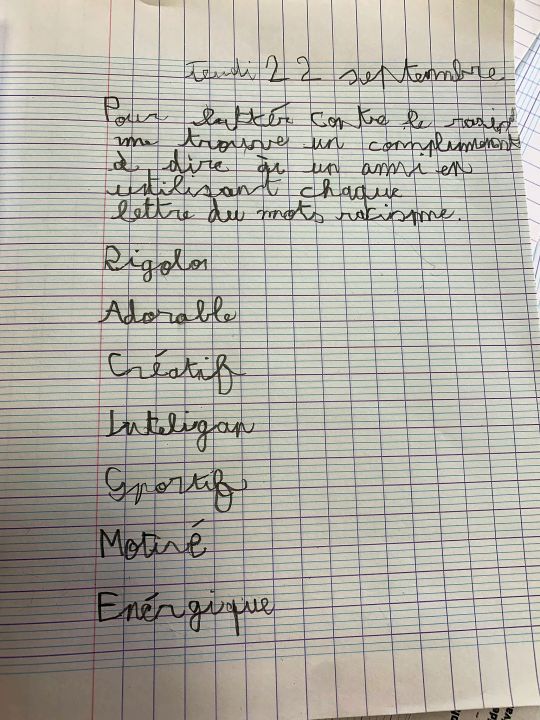 Jeudi 22 septembre
Pour luttér contre le racis
me trouve un compliment
à dire à un ami en
utilisant chaque
lettre du mots racisme.
Rigolo
Adorable
Créatif
Inteligan
Sportif
Motivé
Enérgique